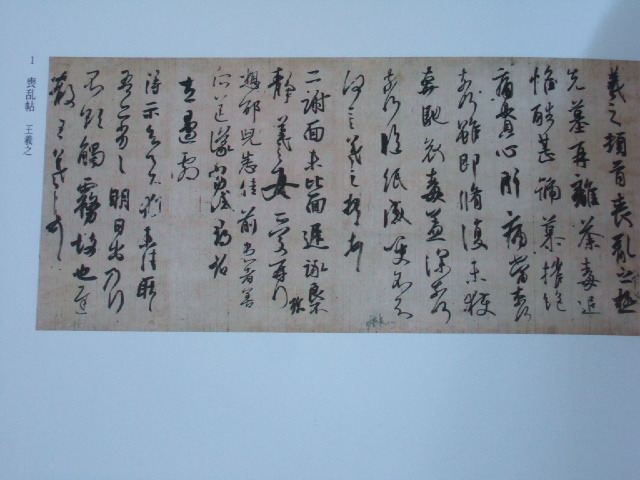 羲之頓首喪亂之極
先墓再離荼毒追
惟酷甚號慕摧絕
痛貫心肝痛當奈何
奈何雖即脩復未獲
奔馳哀毒益深奈何
奈何臨紙感哽不知
何言羲之頓首頓首
二謝面未比面遲詠良不
靜羲之女愛再拜
想邰兒悉佳前患者善
所送議當試尋省
左邊劇
得示知足下猶未佳耿耿
吾亦劣劣明日出乃行
不欲觸霧故也遲
散王羲之頓首
1 喪乱帖 王羲之